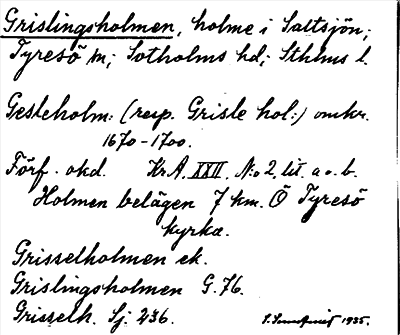 Grislingsholmen, holme i Saltsjön;
Tyresö sn; Sotholms hd; Sthlms l.
Gesleholm: (resp. Grisle hol:) omkr.
1670-1700.
Förf. okd. Kr.A. XXII. No 2, lit. a o. b.
Holmen belägen 7 km. Ö Tyresö
kyrka.
Grisselholmen ek.
Grislingsholmen G. 76.
Grisselh. Sj. 236.
1935.